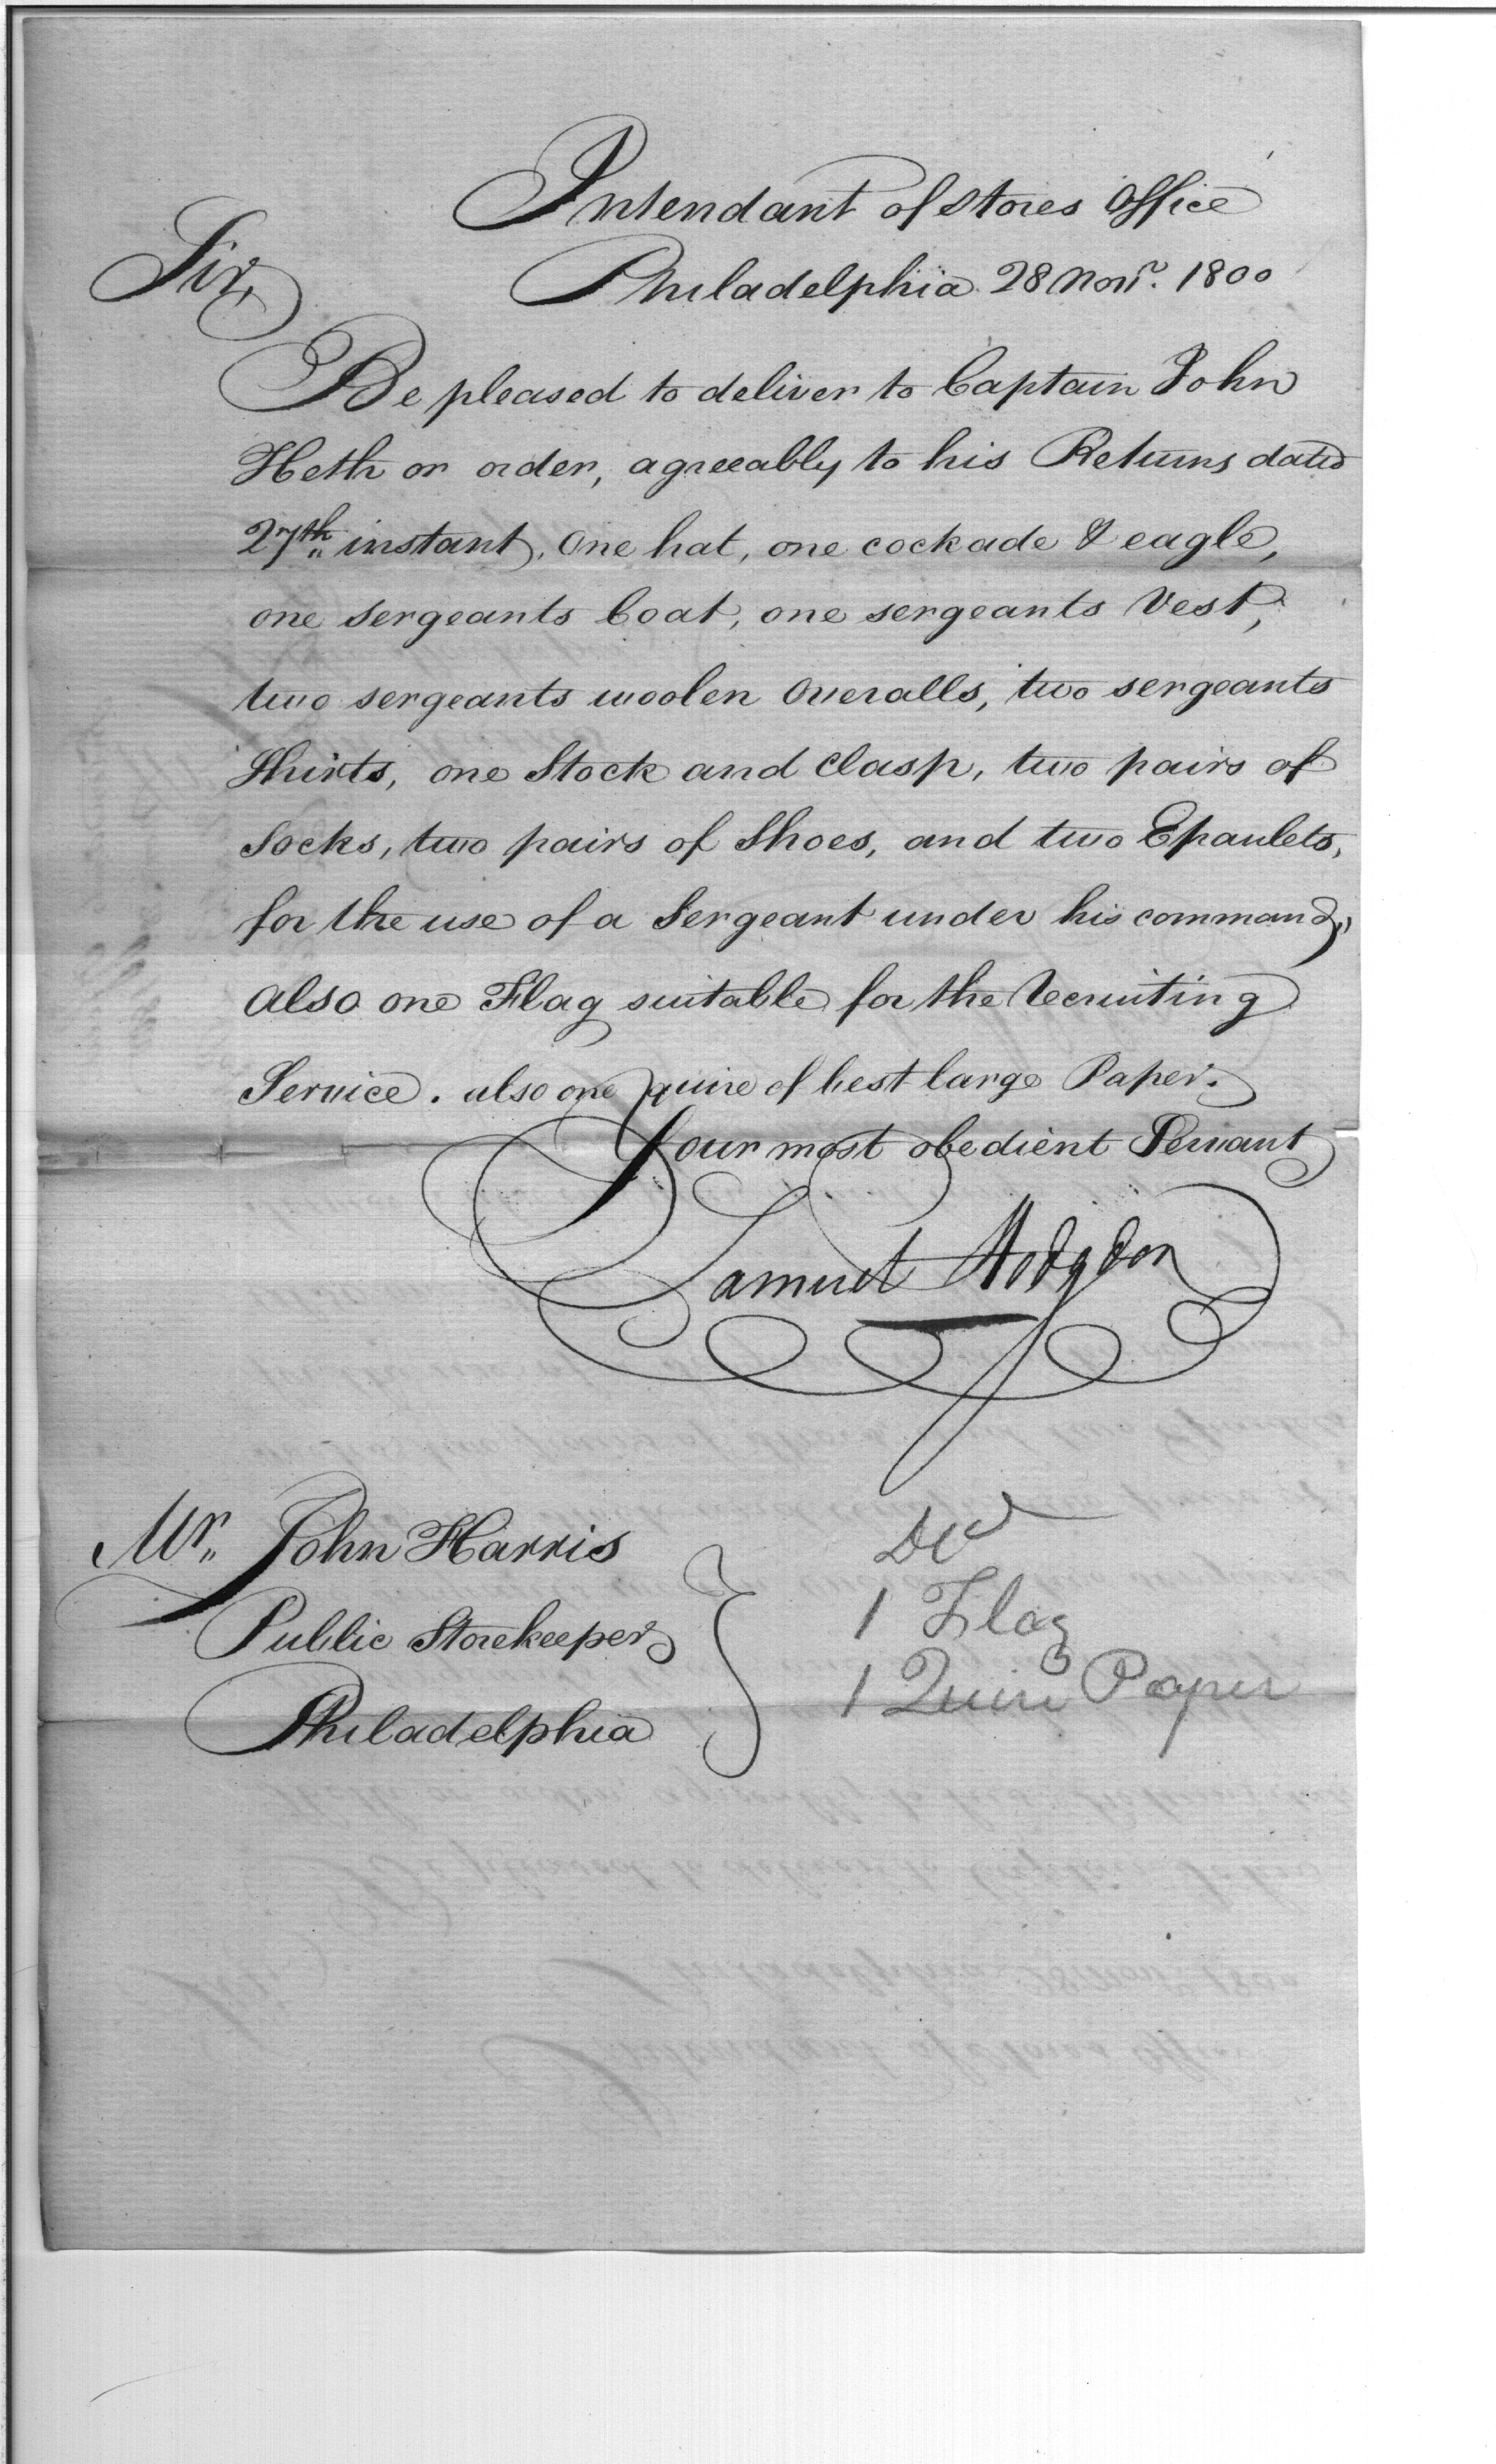 Intendant of Stores Office
Sir,
Philadelphia 28 Novr. 1800
Be pleased to deliver to Captain John
Heth or order, agreeably to his Returns dated
27th instant, One hat, one cockade & eagle,
one sergeants Coat, one sergeants Vest,
two sergeants woolen Overalls, two sergeants
Shirts, one Stock and Clasp, two pairs of
Socks, two pairs of Shoes, and two Epaulets,
for the use of a Sergeant under his command,,
also one Flag suitable for the Recruiting
Service. also one quire of best large Paper.
Your most obedient Servant
Samuel Hodgdon
Mr,, John Harris
Public Storekeeper
Philadelphia
1 Flag
1 Quire Paper